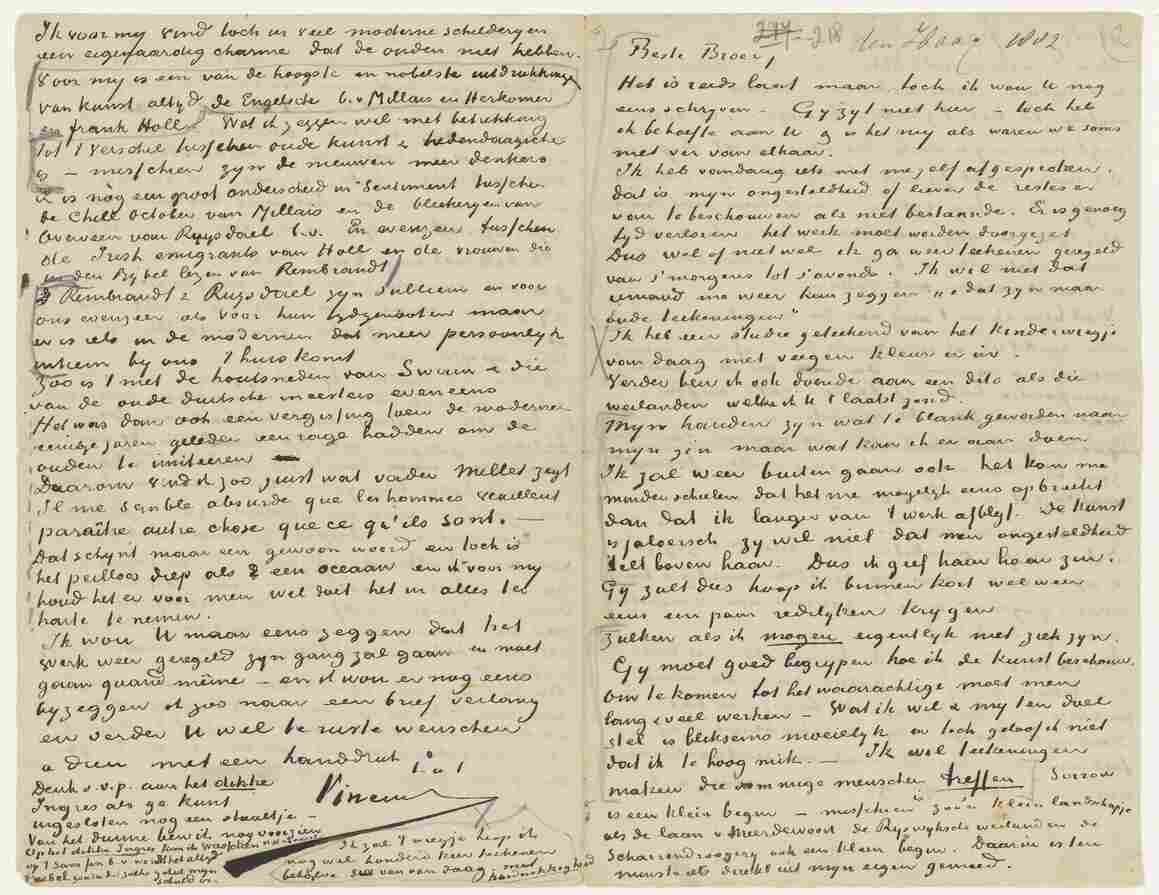 Ik voor my vind toch in veel moderne schilderyen
een eigenaardig charme dat de ouden niet hebben.
Voor my is een van de hoogste en nobelste uitdrukkingen
van kunst altyd de Engelsche b.v. Millais en Herkomer
en frank Holl. Wat ik zeggen wil met betrekking
tot 't verschil tusschen oude kunst & hedendaagsche
is – misschien zyn de nieuwen meer denkers
er is nòg een groot onderscheid in Sentiment tusschen
de Chill October van Millais en de bleekeryen van
Overveen van Ruysdael b.v. En evenzeer tusschen
de Irish emigrants van Holl en de vrouwen die
in den Bybel lezen van Rembrandt
Rembrandt & Ruysdael zyn subliem en voor
ons evenzeer als voor hun tydgenooten maar
er is iets in de modernen dat meer persoonlyk
intiem by ons t'huis komt
Zoo is 't met de houtsneden van Swain & die
van de oude duitsche meesters eveneens
Het was dan ook een vergissing toen de modernen
eenige jaren geleden een rage hadden om de
ouden te imiteeren –
Daarom vind ik zoo juist wat vader Millet zegt
Il me semble absurde que les hommes veuillent
paraître autre chose que ce qu'ils sont. –
Dat schynt maar een gewoon woord en toch is
het peilloos diep als een oceaan en ik voor my
houd het er voor men wel doet het in alles ter
harte te nemen.
Ik wou U maar eens zeggen dat het
werk weer geregeld zyn gang zal gaan en moet
gaan quand même – en ik wou er nog eens
byzeggen ik zoo naar een brief verlang
en verder U wel te ruste wenschen
adieu met een handdruk
t. à t.
Vincent
Denk s.v.p. aan het dikke
Ingres als ge kunt
ingesloten nog een staaltje –
Van het dunne ben ik nog voorzien
Op het dikke Ingres kan ik wasschen
Ik zal 't wiegje hoop ik
nog wel honderd keer teekenen
behalve die van van daag met
hardnekkigheid
218 den Haag 1882
Beste Broer,
Het is reeds laat maar toch ik wou U nog
eens schryven. Gy zyt niet hier – toch heb
ik behoefte aan U & is het my als waren we soms
niet ver van elkaar.
Ik heb vandaag iets met mezelf afgesproken,
dat is myn ongesteldheid of liever de restes er
van te beschouwen als niet bestaande. Er is genoeg
tyd verloren het werk moet worden doorgezet.
Dus wel of niet wel ik ga weer teekenen geregeld
van s'morgens tot s'avonds. Ik wil niet dat
iemand me weer kan zeggen „o dat zyn maar
oude teekeningen"
Ik heb een studie geteekend van het Kinderwiegje
van daag met veegen kleur er in.
Verder ben ik ook doende aan een dito als die
weilanden welke ik U 't laatst zond.
Myn handen zyn wat te blank geworden naar
myn zin maar wat kan ik er aan doen
Ik zal weer buiten gaan ook het kan me
minder schelen dat het me mogelyk eens opbreekt
dan dat ik langer van 't werk afblyf. De Kunst
is jaloersch zy wil niet dat men ongesteldheid
telt boven haar. Dus ik geef haar haar zin.
Gy zult dus hoop ik binnen kort wel weer
eens een paar redelyken krygen
zulken als ik mogen eigentlyk niet ziek zyn.
Gy moet goed begrypen hoe ik de kunst beschouw.
Om te komen tot het waarachtige moet men
lang & veel werken – Wat ik wil & my ten doel
stel is bliksems moeielyk en toch geloof ik niet
dat ik te hoog mik. – Ik wil teekeningen
maken die sommige menschen treffen. Sorrow
is een klein begin – misschien is zoo'n klein landschapje
als de laan v Meerdervoort de Ryswyksche weilanden de
Scharrendroogery ook een klein begin. Daarin is ten
minste iets direkt uit myn eigen gemoed